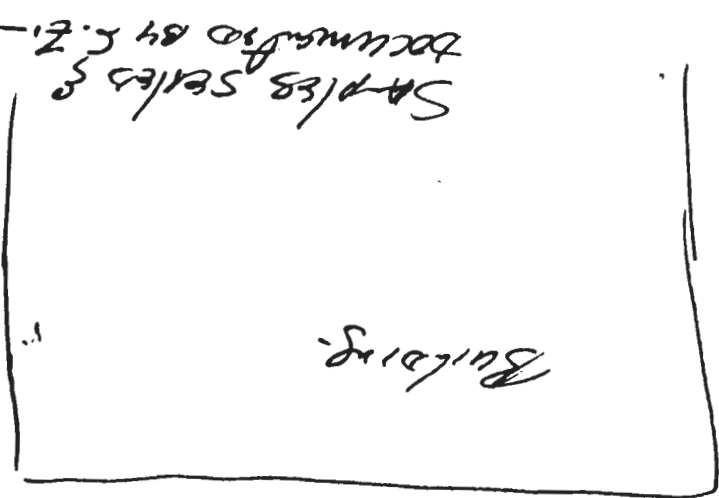 Building.
SAMPLES SEALED &
DOCUMENTED BY